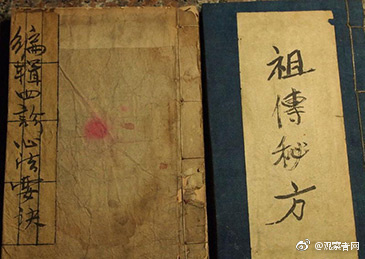 编辑四診心法要诀
祖傳秘方
@观察者网